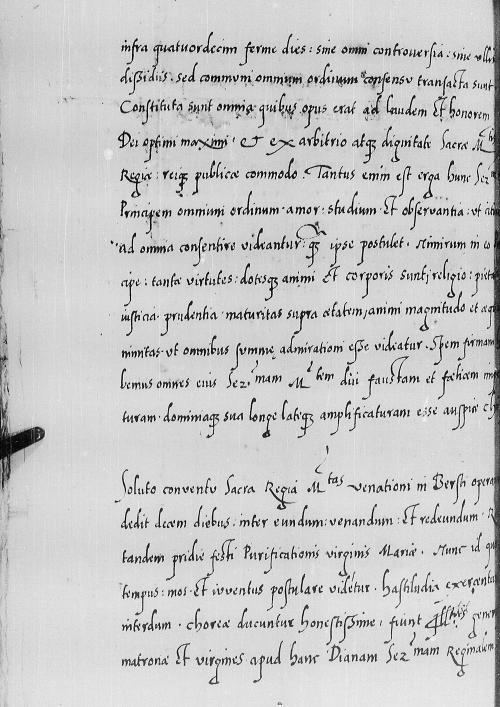 infra quatuordecim ferme dies: sine omni controversia: sine ullis
dissidijs. sed communi omnium ordinum consensu transacta sunt
Constituta sunt omnia quibus opus erat ad laudem Et honorem
Dei optimi maximi. & ex arbitrio atq; dignitate Sacræ M tis
Regiæ: reiq; publicæ commodo. Tantus enim est erga hunc Ser
Principem omnium ordinum. amor. studium. Et observantia: ut
ad omnia consentire videantur. quæ ipse postulet. Nimirum in eo
cipe: tantæ virtutes: dotesq; animi Et corporis sunt, religio: pietas
iusticia. prudentia. maturitas supra ætatem, animi magnitudo et
nimitas. ut omnibus summæ admirationi esse videatur. Spem firmam
bemus omnes eius Ser mam M tem diu faustam et fælicem
turam. dominiaq; sua longe lateq; amplificaturam esse auspice

Soluto conventu Sacra Regia M tas venationi in Bersti operam
dedit decem diebus: inter eundum: venandum: Et redeundum.
tandem pridie festi Purificationis virginis Mariæ. Nunc id
tempus: mos. Et iuventus postulare videtur. hastiludia exercentur
interdum. choreæ ducuntur honestissime. fiunt
matronæ Et virgines apud hanc Dianam Ser mam Reginalem